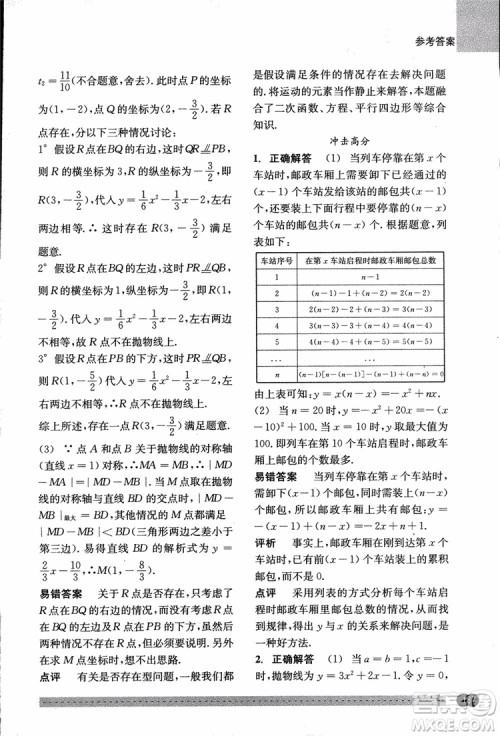 参考答案
t₂=11/10(不合题意,舍去). 此时点 P 的坐标
为(1,-2),点 Q 的坐标为(1,-3/2). 若 R
点存在,分以下三种情况讨论:
1° 假设 R 点在BQ的右边,这时QR⫽PB,
则,R 的横坐标为 3,R 的纵坐标为-3/2,
即 R(3,-3/2),代入 y=1/6x²+1/6x-2,左右
两边相等.∴ 这时存在 R(3,-3/2)满足
题意.
2° 假设 R 点在BQ的左边,这时PR⫽QB,
则,R 的横坐标为-1,纵坐标为-3/2,即R(-1,
-3/2),代入 y=1/6x²+1/6x-2,左右两边不
相等,R 点不在抛物线上.
3° 假设 R 点在PB的下方,这时PR⫽QB,
则,R(1,-5/2)代入,y=1/6x²+1/6x-2,左
右不相等,∴ R 点不在抛物线上.
综上所述,存在点 R(3,-3/2)满足题意.
(3) ∵ 点 A 和点 B 关于抛物线的对称轴
(直线 x=1)对称,∴ MA=MB,∴ |MD
-MA|=|MD-MB|,当点 M 同时在抛
物线的对称轴与直线 BD 的交点时,|MD
-MB|最大=BD(三角形两边之差小于
第三边). 易得直线 BD 的解析式为 y=
2/3x-10/3,∴M(1,-8/3).
易错答案 关于 R 点是否存在,只考虑了
R 点在BQ的右边的情况,而没有考虑另外
两种情况,所以解题过程不完整. 还有,在
求 M 点坐标时,想不出思路.
点评 有关是否存在型问题,一般我们都
是假设满足条件的情况存在去解决问题
的. 将运动的元素当作静止来解答. 本题融
合了二次函数、方程、平行四边形等综合
知识.
冲击高分
1. 正确解答 (1) 当列车停靠在第 x 个
车站时,邮政车厢上需要卸下已经通过的
(x-1)个车站发给该站的邮包共(x-1)
个,还要装上下面行程中要停靠的(n-x)
个车站的邮包共(n-x)个. 根据题意,列
表如下:
车站序号 在第 x 个车站启程时邮政车厢邮包总数
1 n-1
2 (n-1)-1+(n-2)=2(n-2)
3 2(n-2)-2+(n-3)=3(n-3)
4 3(n-3)-3+(n-4)=4(n-4)
5 4(n-4)-4+(n-5)=5(n-5)
… …
n (n-1)[n-(n-1)]-(n-1)=0
由上表可知:y=x(n-x)=-x²+nx.
(2) 当 n=20 时,y=-x²+20x=
-(x-10)²+100,当 x=10 时,y取最大值
100. 即列车在第 10 个车站启程时,邮政车厢上
邮包的个数最多.
易错答案 当列车停靠在第 x 个车站时,
需要卸下(x-1)个邮包,还要装上(n-x)
个邮包,所以,y=-(x-1)+(n-x)+
0=-(x-1)+(n-x).
评析 事实上,邮政车厢在刚到达第 x 个
车站时,车厢上还有前几个车站上的累积
邮包,而不是 0.
点评 采用列表的方式分析每个车站启
程时邮政车厢里邮包总数的情况,找出启
程时邮包总数 y 与 x 的关系来解决问题,是
一种好方法.
2. 正确解答 (1) 当 a=b=1,c=
-1 时,抛物线为 y=3x²+2x-1,方程
作业帮